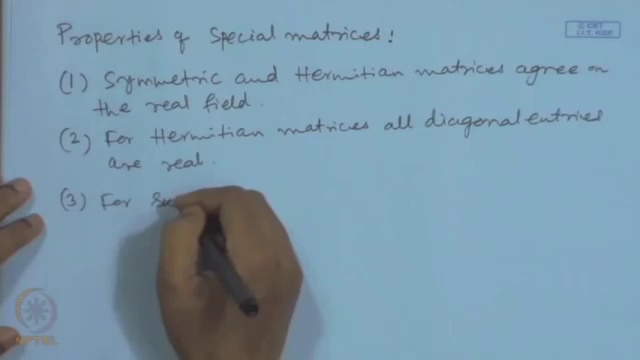 Properties of Special matrices:
© CET
I.I.T. KGP
(1) Symmetric and Hermitian matrices agree on
the real field.
(2) For Hermitian matrices all diagonal entries
are real.
(3) For
NPTEL